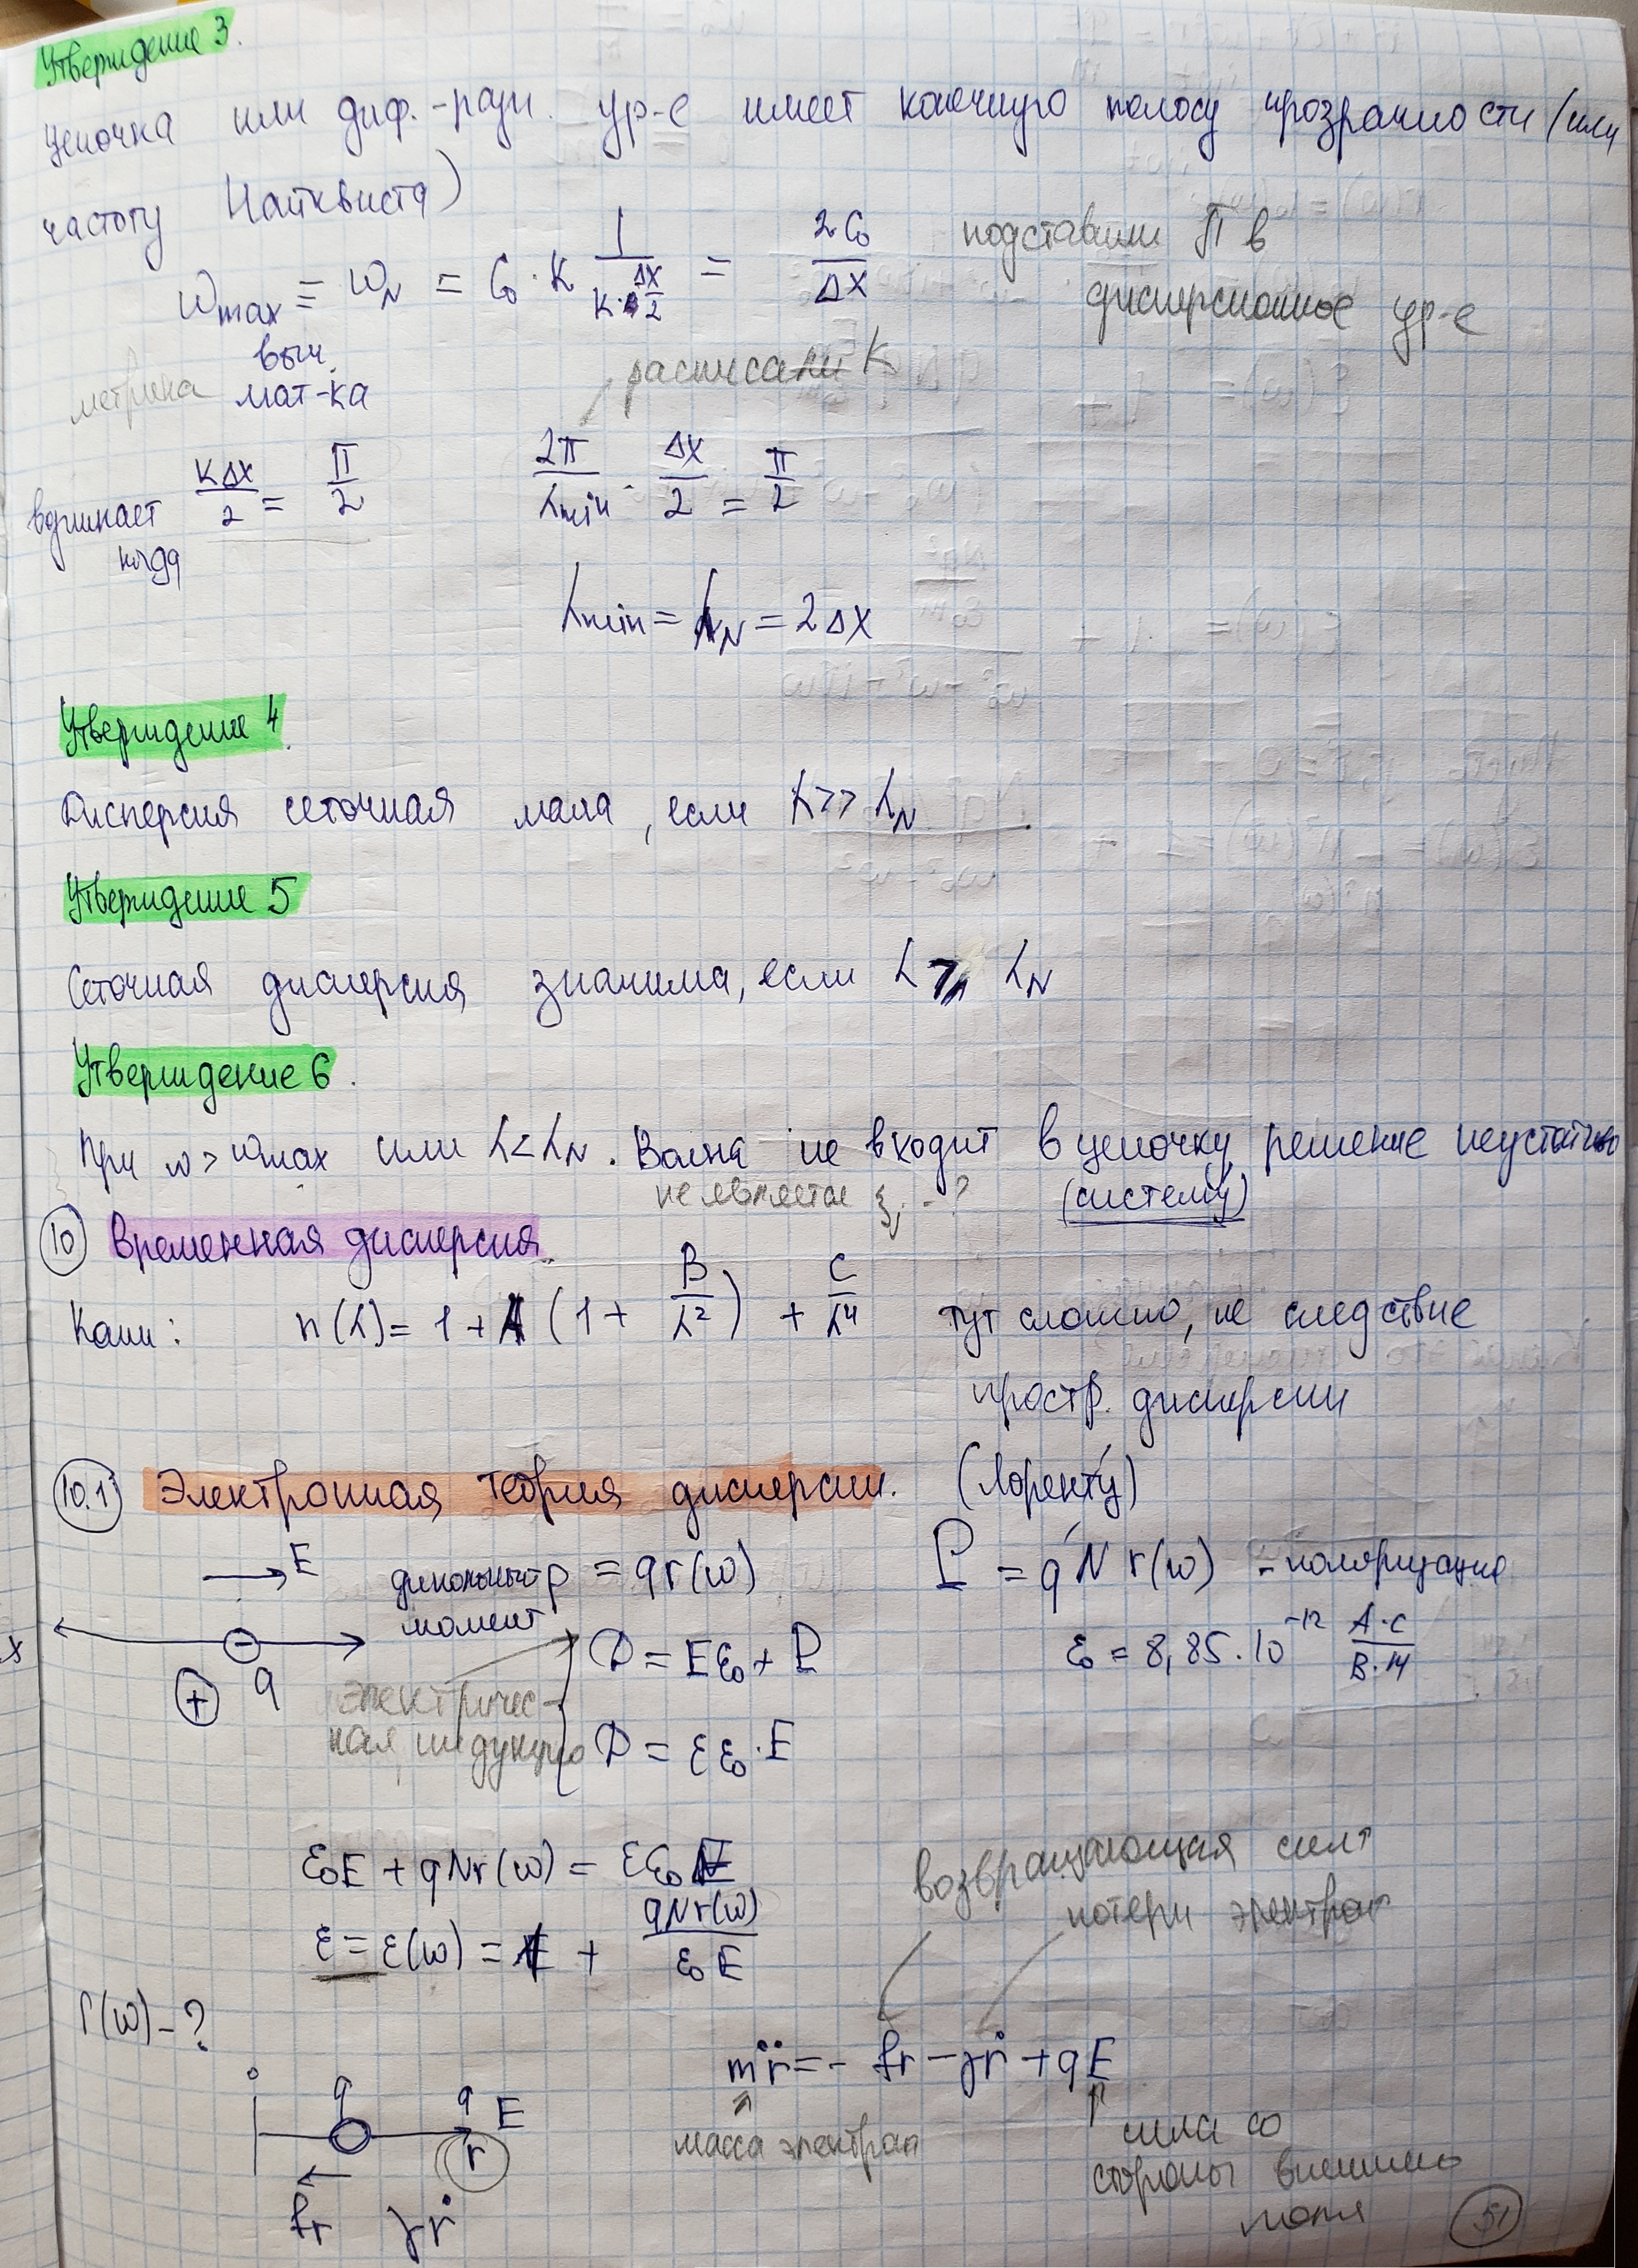 Утверждение 3.
Цепочка или диф.-разн. ур-е имеет конечную полосу прозрачности (или
частоту Найквиста)
ω_max = ω_N = C₀ · K 1/(K · Δx/2) = 2C₀/Δx подставили П в
дисперсионное ур-е
выч.
метрика мат-ка
расписали K
возникает когда KΔx/2 = П/2 2π/λ_min · Δx/2 = π/2
λ_min = λ_N = 2Δx
Утверждение 4.
Дисперсия сеточная мала, если λ >> λ_N.
Утверждение 5
Сеточная дисперсия значима, если λ ⩾ λ_N
Утверждение 6.
При ω > ω_max или λ < λ_N. Волна не входит в цепочку, решение неустойчиво
не является (систему)
10 Временная дисперсия.
Коши: n(λ) = 1 + A (1 + B/λ²) + C/λ⁴ тут сложно, не следствие
простр. дисперсии
10.1 Электронная теория дисперсии. (Лоренц)
E дипольный момент p = qr(ω) P = qNr(ω) - поляризация
D = Eε₀ + P ε₀ = 8,85·10⁻¹² А·с/В·м
+ q электрическая индукция
D = εε₀·E
ε₀E + qNr(ω) = εε₀E
возвращающая сила
потери электрон
ε = ε(ω) = 1 + qNr(ω)/ε₀E
r(ω) - ?
mr̈ = - fr - γṙ + qE
q q E
r
масса электрон
сила со
стороны внешнего
поля
fr γṙ
51